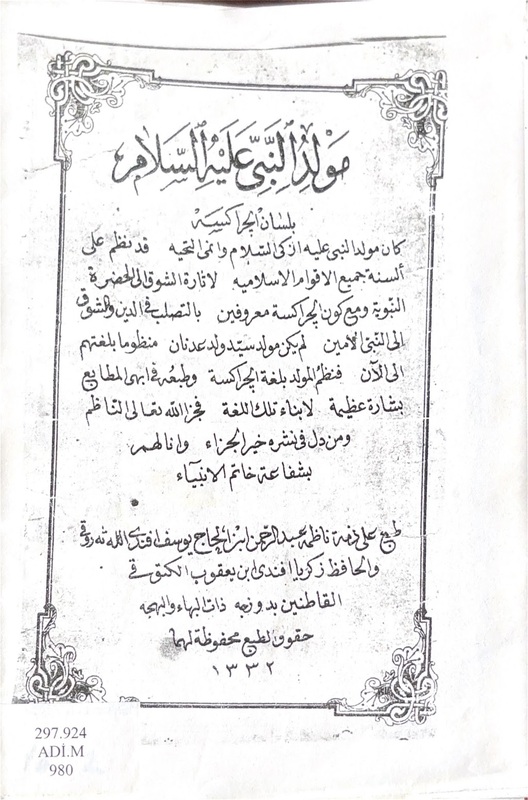 مَوْلِدُ النَّبِيِّ عَلَيْهِ السَّلَام
بلسان الچراكسه
كان مولد النبى عليه ازكى السلام وانمى التحيه قد نظم على
ألسنة جميع الاقوام الاسلاميه لاثارة الشوق الى الحضرة
النبوية ومع كون الچراكسة معروفين بالتصلب فى الدين والشوق
الى النبى الامين لم يكن مولد سيد ولد عدنان منظوما بلغتهم
الى الآن فنظم المولد بلغة الچراكسة وطبعه فى ابهى المطابع
بشارة عظيمة لابناء تلك اللغة فجزا الله تعالى الناظم
ومن دل فى نشره خير الجزاء وانالهم
بشفاعة خاتم الانبياء
طبع على ذمة ناظمه عبد الرحمن ابن الحاج يوسف افندى
والحافظ زكريا افندى ابن يعقوب
القاطنين بدوزجه ذات البهاء والبهجه
حقوق الطبع محفوظة لهما
١٣٣٢
297.924
ADİ.M
980